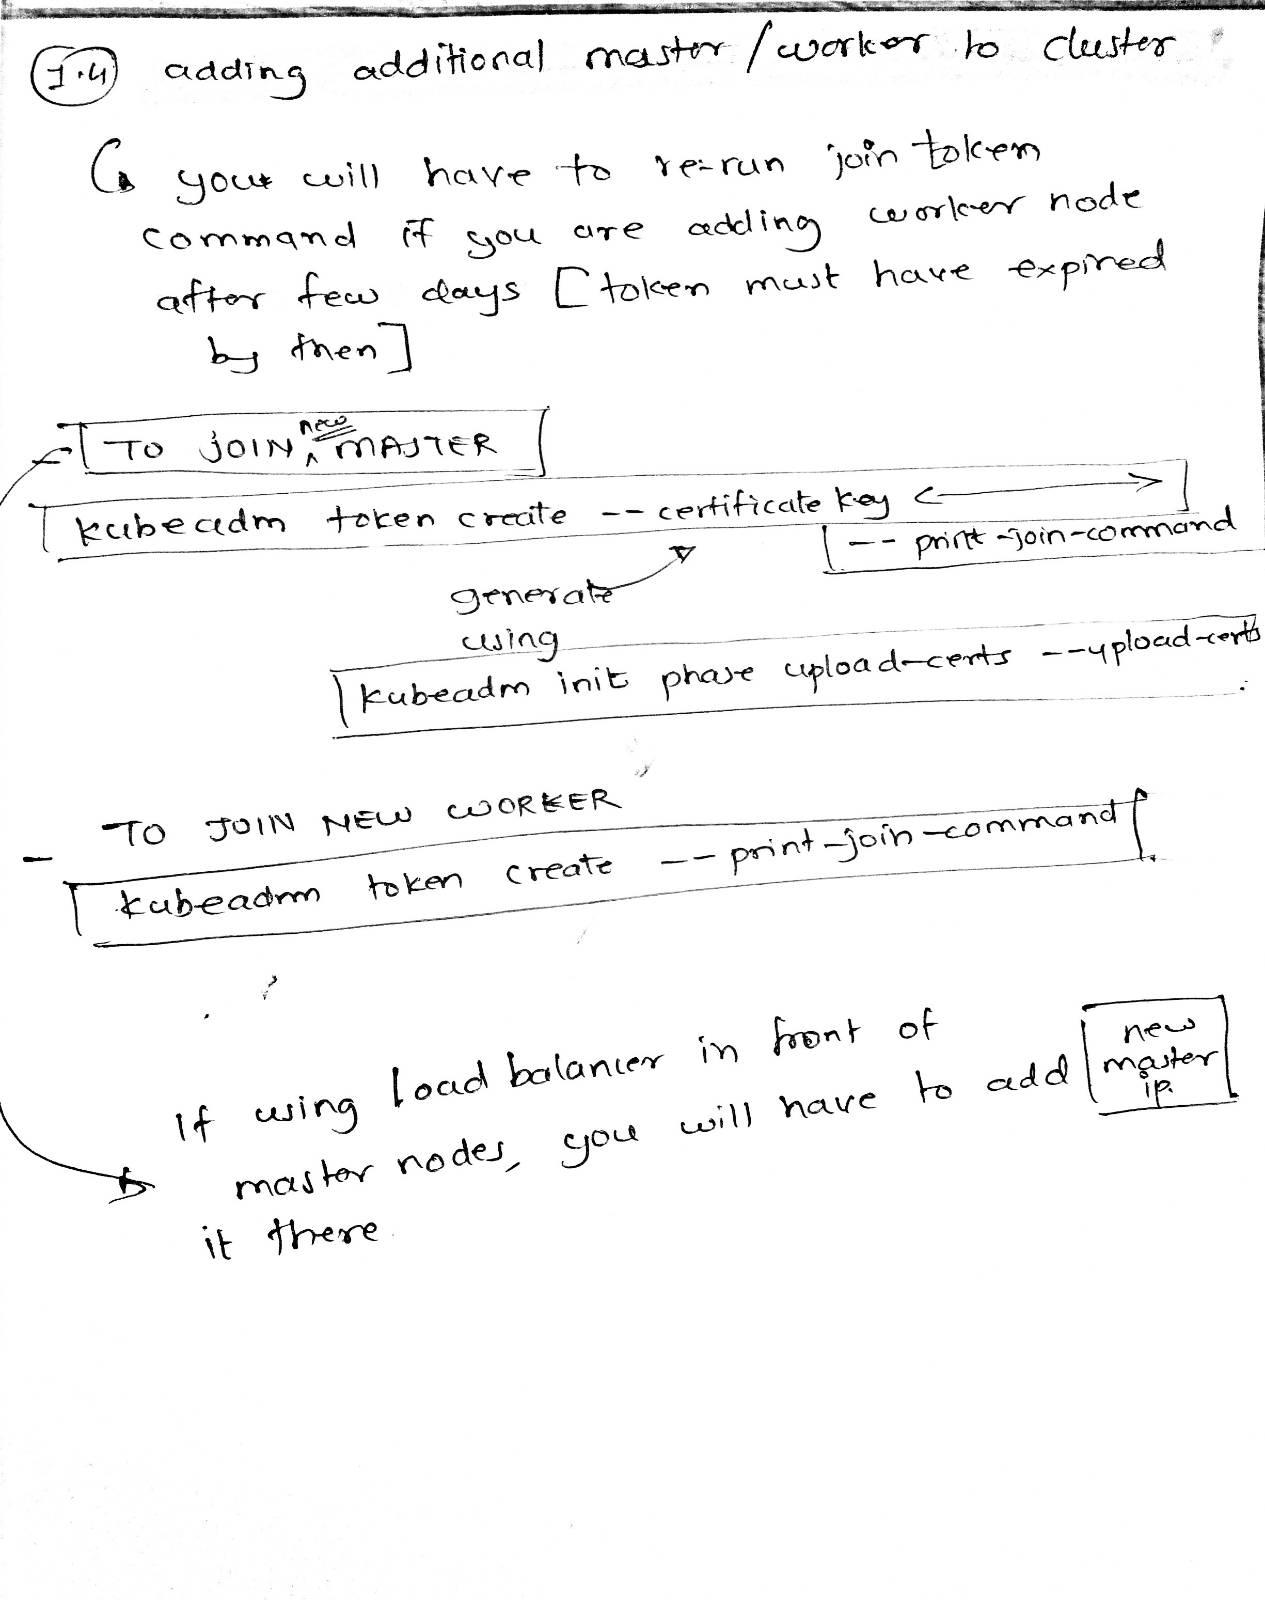 1.4 adding additional master/worker to cluster
you will have to re-run join token
command if you are adding worker node
after few days [token must have expired
by then]
TO JOIN new MASTER
kubeadm token create --certificate key
--print-join-command
generate
using
kubeadm init phase upload-certs --upload-certs
- TO JOIN NEW WORKER
kubeadm token create --print-join-command
If using load balancer in front of
master nodes, you will have to add new master ip.
it there